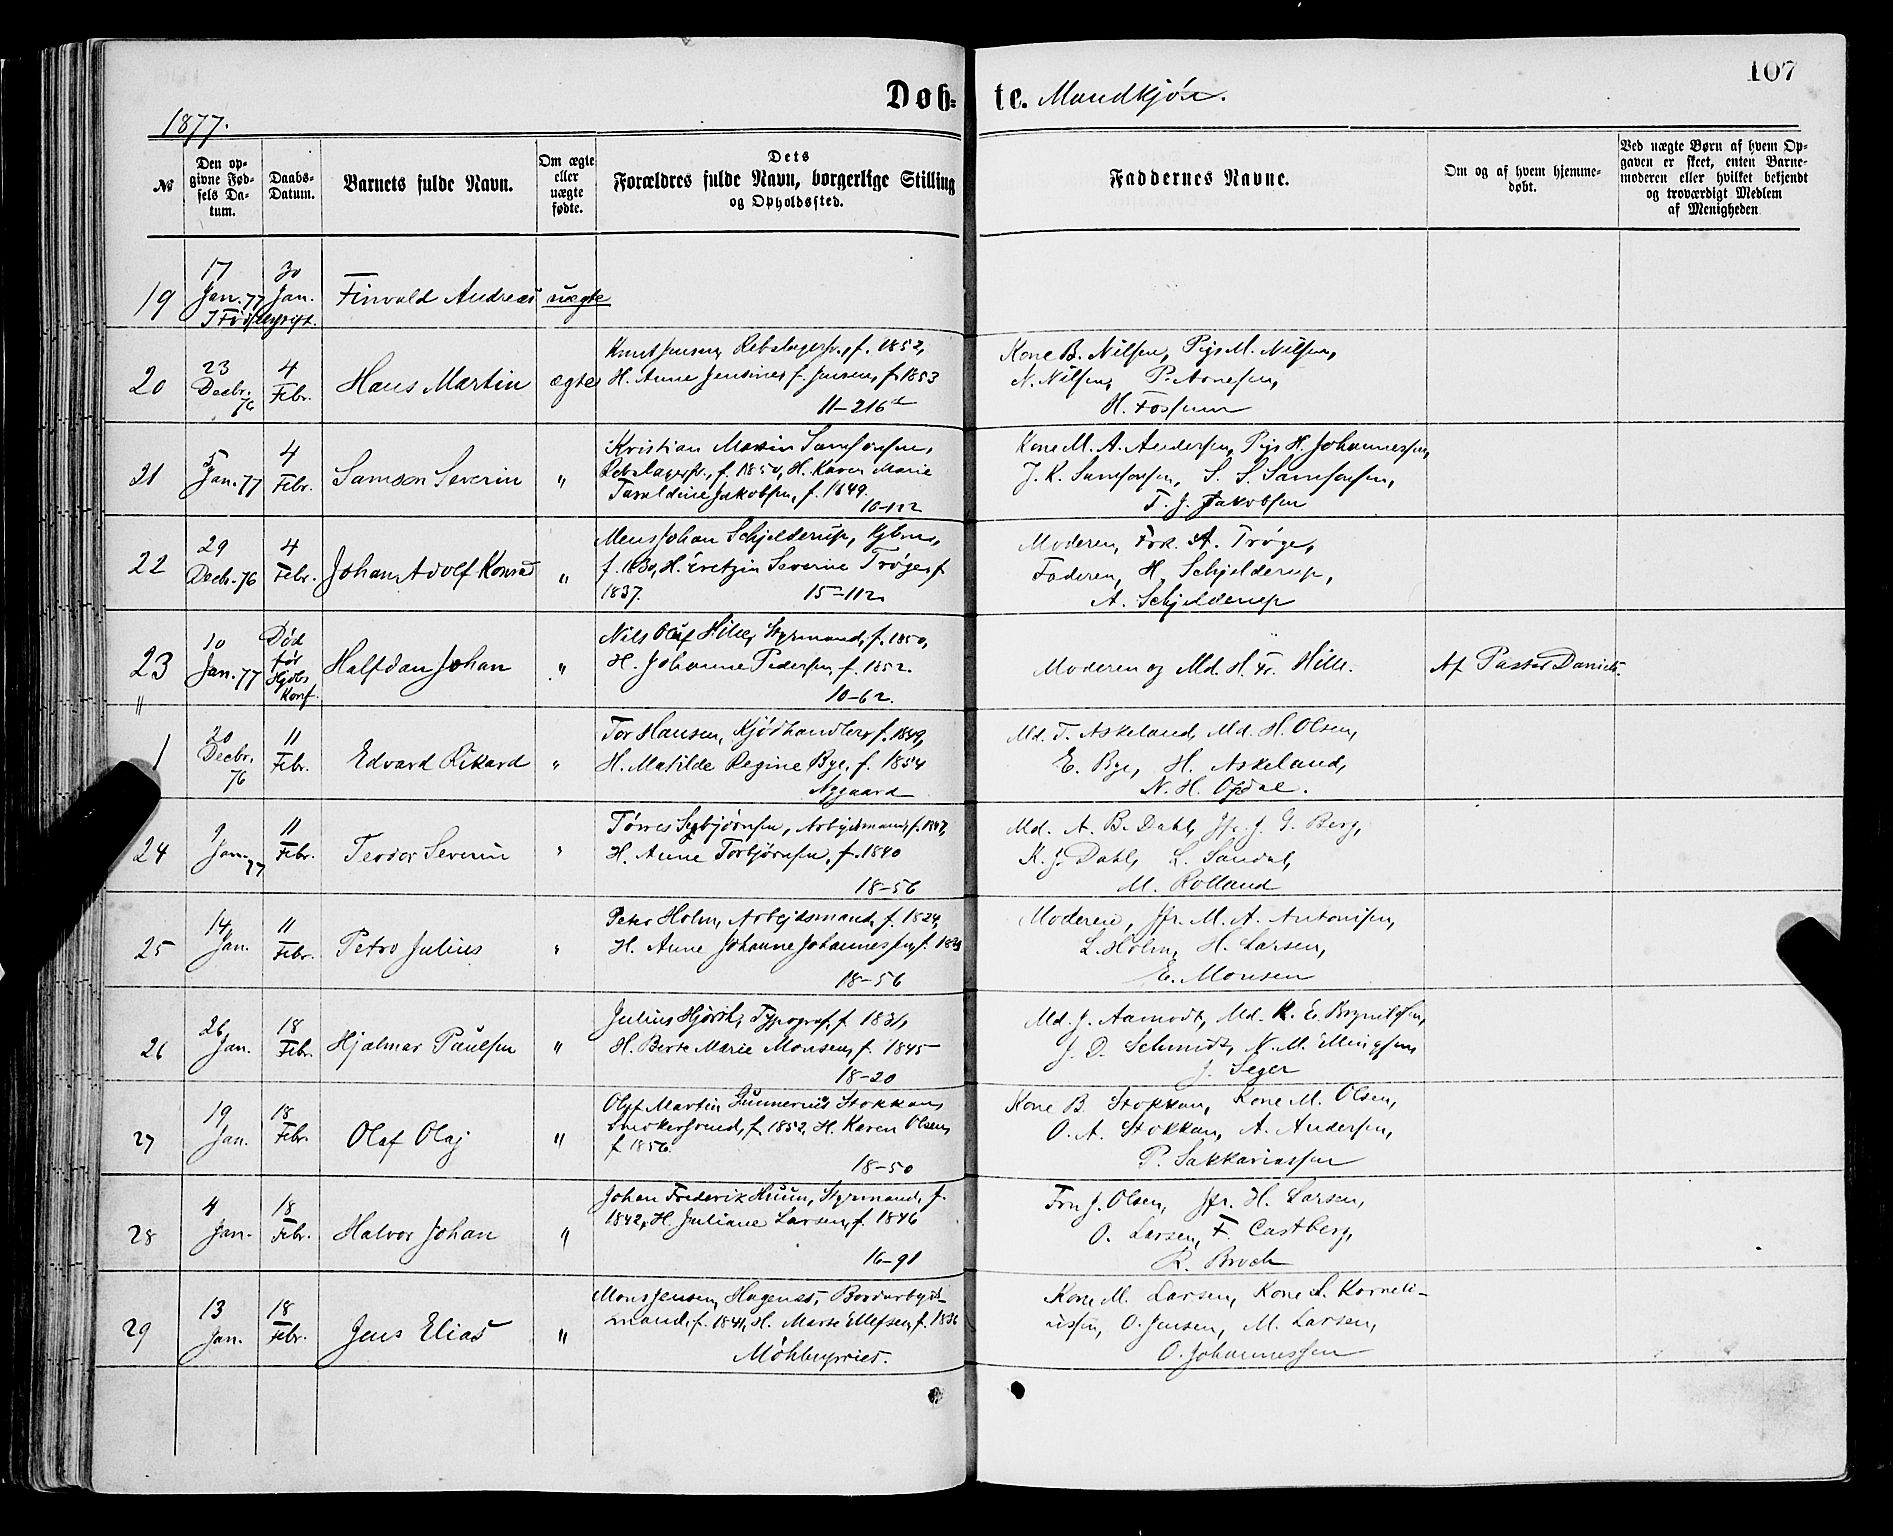 107
Døb- te. Mandkjøn.
1877.
№
Den op-
givne Fød-
sels Da-
tum.
Daabs-
Datum.
Barnets fulde Navn.
Om ægte
eller
uægte
fødte.
Dets
Forældres fulde Navn, borgerlige Stilling
og Opholdssted.
Faddernes Navne.
Om og af hvem hjemme-
døbt.
Ved uægte Børn af hvem Op-
gaven er skeet, enten Barne-
moderen eller hvilket bekjendt
og troværdigt Medlem
af Menigheden
19 17 Jan. 77 30 Jan. Finvald Andreas uægte
20 23 Decbr. 76 4 Febr. Hans Martin ægte
Knut Jensen, Rebslagersv., f. 1852,
H. Anne Jensine f. Jensen, f. 1853
11-216
Kone B. Nilsen, Pige M. Nilsen,
N. Nilsen, P. Arnesen,
H. Fossum
21 5 Jan. 77 4 Febr. Samson Severin "
Kristian Martin Samsonsen,
Rebslagersv., f. 1850, H. Karen Marie
Taraldine Jakobsen, f. 1849.
10-112
Kone M. A. Andersen, Pige H. Johannessen,
J. K. Samsonsen, S. S. Samsonsen,
T. J. Jakobsen
22 29 Decb. 76 4 Febr. Johan Adolf Konrad "
Mens Johan Schjelderup, Kjbm.,
f. 1830, H. Severine Trøge, f.
1837. 15-112
Moderen, Frk. A. Trøge,
Faderen, H. Schjelderup,
A. Schjelderup
23 10 Jan. 77 Død før Hjdbs Konf. Halfdan Johan "
Nils Oluf Hille, Styrmand, f. 1850,
H. Johanne Pedersen, f. 1852.
10-62.
Moderen og Md. H. Fr. Hille.
Af Pastor Daniels.
"
1 20 Decbr. 76 11 Febr. Edvard Rikard "
Tor Hansen, Kjødhandler, f. 1849,
H. Matilde Regine Bye, f. 1854
Nygaard
Md. T. Askeland, Md. H. Olsen,
E. Bye, H. Askeland,
N. H. Opdal.
24 Jan. 77 11 Febr. Teodor Severin "
Tørres Sebjørnsen, Arbejdsmand, f. 1847,
H. Anne Torbjørnsen, f. 1840
18-56
Md. A. B. Dahl, Jfr. J. G. Berg,
K. J. Dahl, L. Sandal,
M. Rolland
25 14 Jan. 11 Febr. Petro Julius "
Peter Holm, Arbejdsmand, f. 1824,
H. Anne Johanne Johannessen, f.
18-56
Moderen, Jfr. M. A. Antonisen,
L. Holm, H. Larsen,
E. Monsen
26 26 Jan. 18 Febr. Hjalmar Paulsen "
Julius Hjorth, Typograf, f. 1831,
H. Berte Marie Monsen, f. 1845
18-20
Md. J. Aamodt, Md. K. E. Brynildsen,
J. D. Schmidt, N. M. Ellingsen,
J. Seger
27 19 Jan. 18 Febr. Olaf Olaj "
Oluf Martin Gunnerius Stokkan,
Snekkersvend, f. 1852, H. Karen Olsen,
f. 1856.
18-50
Kone B. Stokkan, Kone M. Olsen,
O. A. Stokkan, A. Andersen,
P. Sakkariassen
28 4 Jan. 18 Febr. Halvor Johan "
Johan Frederik Huun, Styrmand, f.
1842, H. Juliane Larsen, f. 1846
16-91
Fru J. Olsen, Jfr. H. Larsen,
O. Larsen, F. Castberg,
R. Broch
29 13 Jan. 18 Febr. Jens Elias "
Mons Jensen Hagenæs, Bordarbejds-
mand, f. 1841, H. Marte Ellefsen, f. 1836
Møhlenpries.
Kone M. Larsen, Kone A. Korneli-
ussen, O. Jensen, M. Larsen,
O. Johannessen